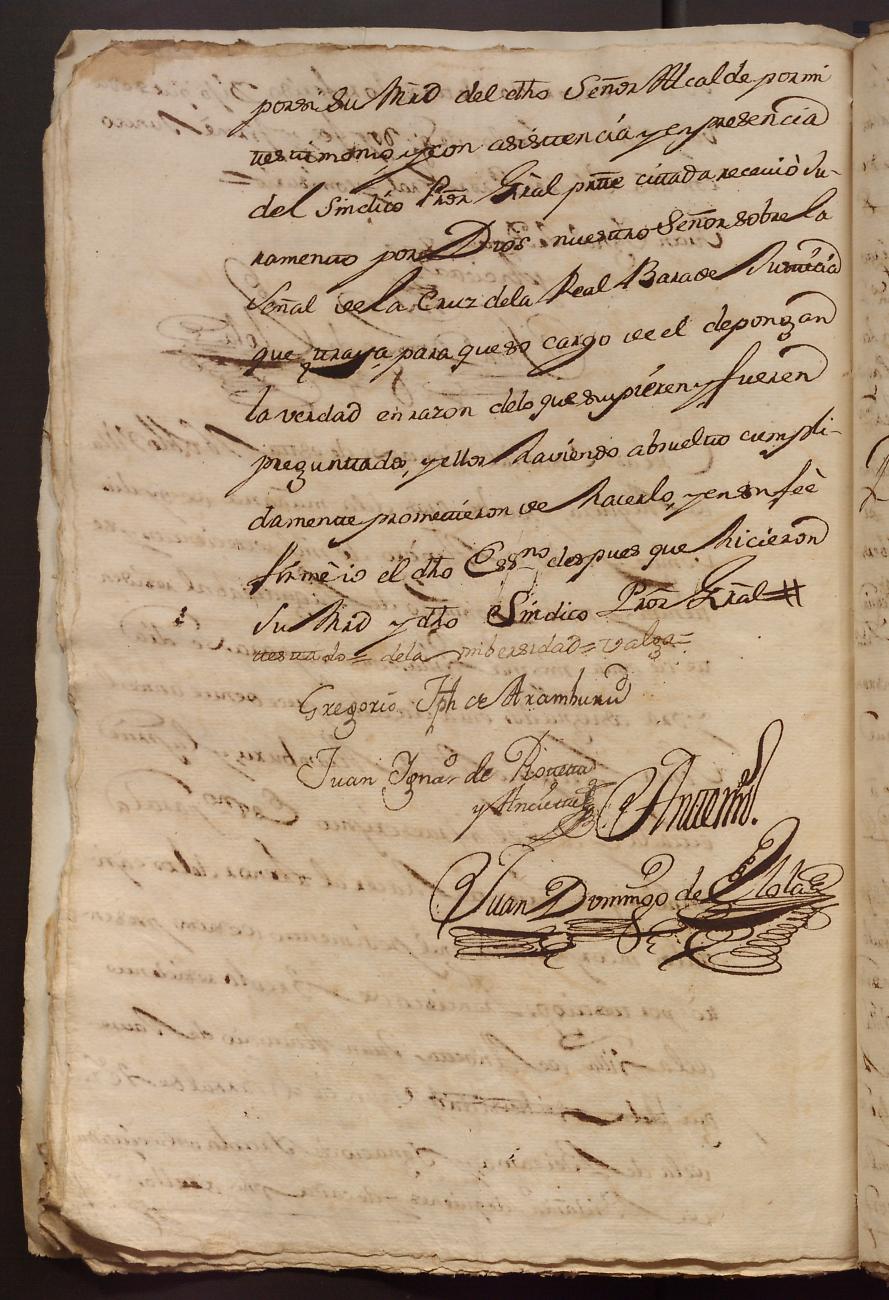 por su Mrd del dho Señor Alcalde por mi
testimonio, y con asistencia y en presencia
del Sindico Pror Gral prte citada recevió Ju-
ramento por Dios nuestro Señor sobre la
Señal de la Cruz de la Real Bara de Justicia
que traya para que so cargo de el depongan
la verdad en razon de lo que supieren y fueren
preguntados, y ellos haviendo absuelto cumpli-
damente prometieron de hacerlo, y en su feè
firmè io el dho Essno despues que hicieron
Su Mrd y dho Sindico Pror Gral
testado = de la unibersidad = valga =
Gregorio Jph de Aramburu
Juan Ignao de
y Anchieta
Antemi.
Juan Domingo de Olola